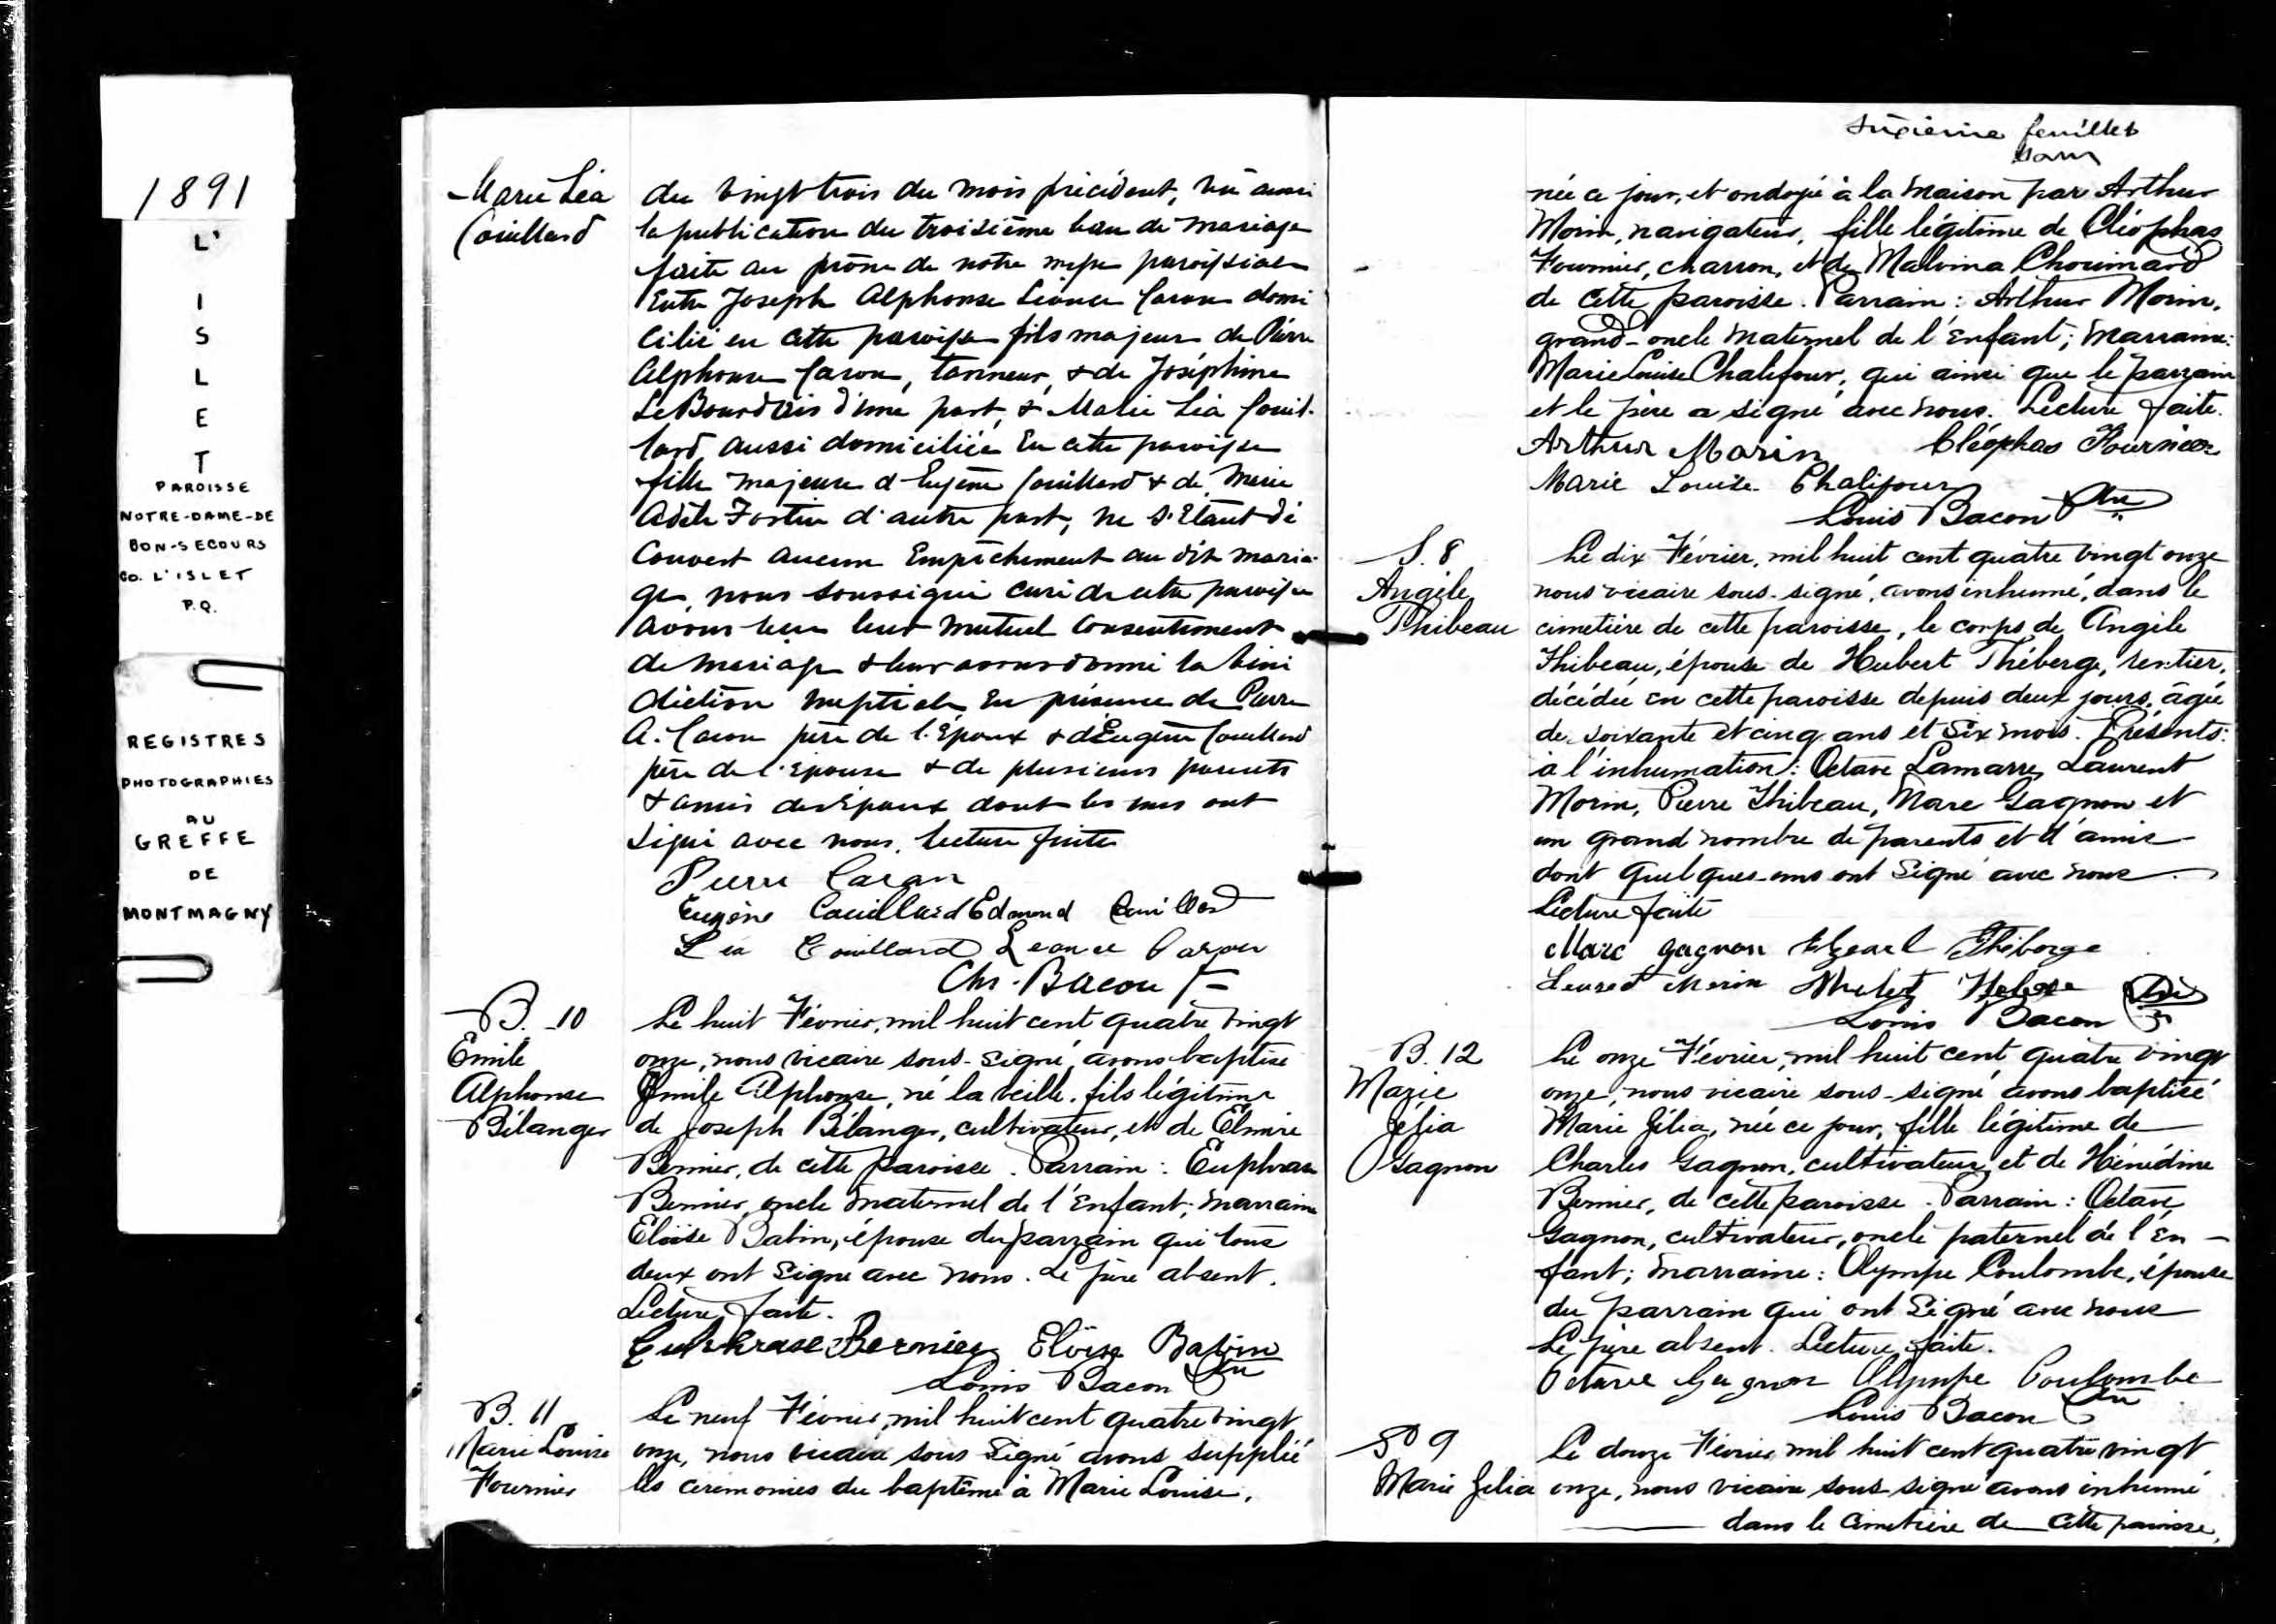 1891
L'
I
S
L
E
T
PAROISSE
NOTRE-DAME-DE
BON-SECOURS
CO. L'ISLET
P.Q.
REGISTRES
PHOTOGRAPHIES
AU
GREFFE
DE
MONTMAGNY
Marie Léa
Couillard
du vingt trois du mois précédent, vû aussi
la publication du troisième ban de mariage
faite au prône de notre messe paroissiale
Entre Joseph Alphonse Léonce Caron domi
cilié en cette paroisse fils majeur de Pierre
Alphonse Caron, tanneur, & de Joséphine
LeBourdais d'une part, & Marie Léa Couil-
lard, aussi domiciliée en cette paroisse
fille majeure d'Eugène Couillard & de Marie
Adèle Fortin d'autre part, ne s'étant dé
couvert aucun Empêchement au dit maria-
ge, nous soussigné curé de cette paroisse
avons reçu leur mutuel consentement
de mariage & leur avons donné la béné
diction nuptiale en présence de Pierre
A. Caron père de l'Époux & d'Eugène Couillard
père de l'épouse & de plusieurs parents
& amis des Époux dont les uns ont
signé avec nous. Lecture faite
Pierre Caron
Eugène Couillard Edmond Couillard
Léa Couillard Léonce Caron
Chs. Bacon
B. 10
Emile
Alphonse
Bélanger
Le huit Février, mil huit cent quatre vingt
onze, nous vicaire sous-signé, avons baptisé
Emile Alphonse, né la veille, fils légitime
de Joseph Bélanger, cultivateur, et de Elmire
Bernier, de cette paroisse. Parrain: Euphrase
Bernier, oncle maternel de l'Enfant; marraine
Eloïse Babin, épouse du parrain qui tous
deux ont signé avec nous. Le père absent.
Lecture faite.
Euphrase Bernier Eloïse Babin
Louis Bacon Ptre
B. 11
Marie Louise
Fournier
Le neuf Février, mil huit cent quatre vingt
onze, nous vicaire sous signé avons suppléé
les cérémonies du baptême à Marie Louise,
sixième feuillet
née ce jour, et ondoyé à la maison par Arthur
Morin, navigateur, fille légitime de Cléophas
Fournier, charron, et de Malvina Chouinard
de cette paroisse. Parrain: Arthur Morin,
grand-oncle maternel de l'Enfant; marraine:
Marie Louise Chalifour, qui ainsi que le parrain
et le père a signé avec nous. Lecture faite.
Arthur Morin Cléophas Fournier
Marie Louise Chalifour
Louis Bacon Ptre
S. 8
Angèle
Thibeau
Le dix Février, mil huit cent quatre vingt onze
nous vicaire sous-signé, avons inhumé, dans le
cimetière de cette paroisse, le corps de Angèle
Thibeau, épouse de Hubert Théberge, rentier,
décédée en cette paroisse depuis deux jours, âgée
de soixante et cinq ans et six mois. Présents:
à l'inhumation: Octave Lamarre, Laurent
Morin, Pierre Thibeau, Marc Gagnon et
un grand nombre de parents et d'amis
dont quelques-uns ont signé avec nous.
Lecture faite
Marc Gagnon Elzear Théberge
Morin
Louis Bacon Ptre
B. 12
Marie
Jélia
Gagnon
Le onze Février, mil huit cent quatre vingt
onze, nous vicaire sous-signé avons baptisé
Marie Jélia, née ce jour, fille légitime de
Charles Gagnon, cultivateur, et de Hénédine
Bernier, de cette paroisse. Parrain: Octave
Gagnon, cultivateur, oncle paternel de l'En-
fant; marraine: Olympe Coulombe, épouse
du parrain qui ont signé avec nous
Le père absent. Lecture faite.
Octave Gagnon Olympe Coulombe
Louis Bacon Ptre
S 9
Marie Jelia
Le douze Février mil huit cent quatre vingt
onze, nous vicaire sous-signé avons inhumé
dans le cimetière de cette paroisse,